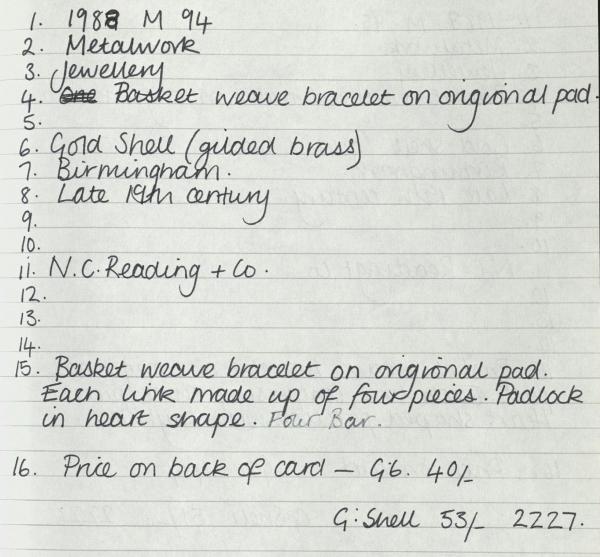 1. 1988 M 94
2. Metalwork
3. Jewellery
4. One Basket weave bracelet on origional pad.
5.
6. Gold Shell (gilded brass)
7. Birmingham.
8. Late 19th century
9.
10.
11. N.C. Reading + Co.
12.
13.
14.
15. Basket weave bracelet on origional pad.
Each link made up of four pieces. Padlock
in heart shape. Four Bar.
16. Price on back of card – G6. 40/-
G. Shell 53/- 2227.